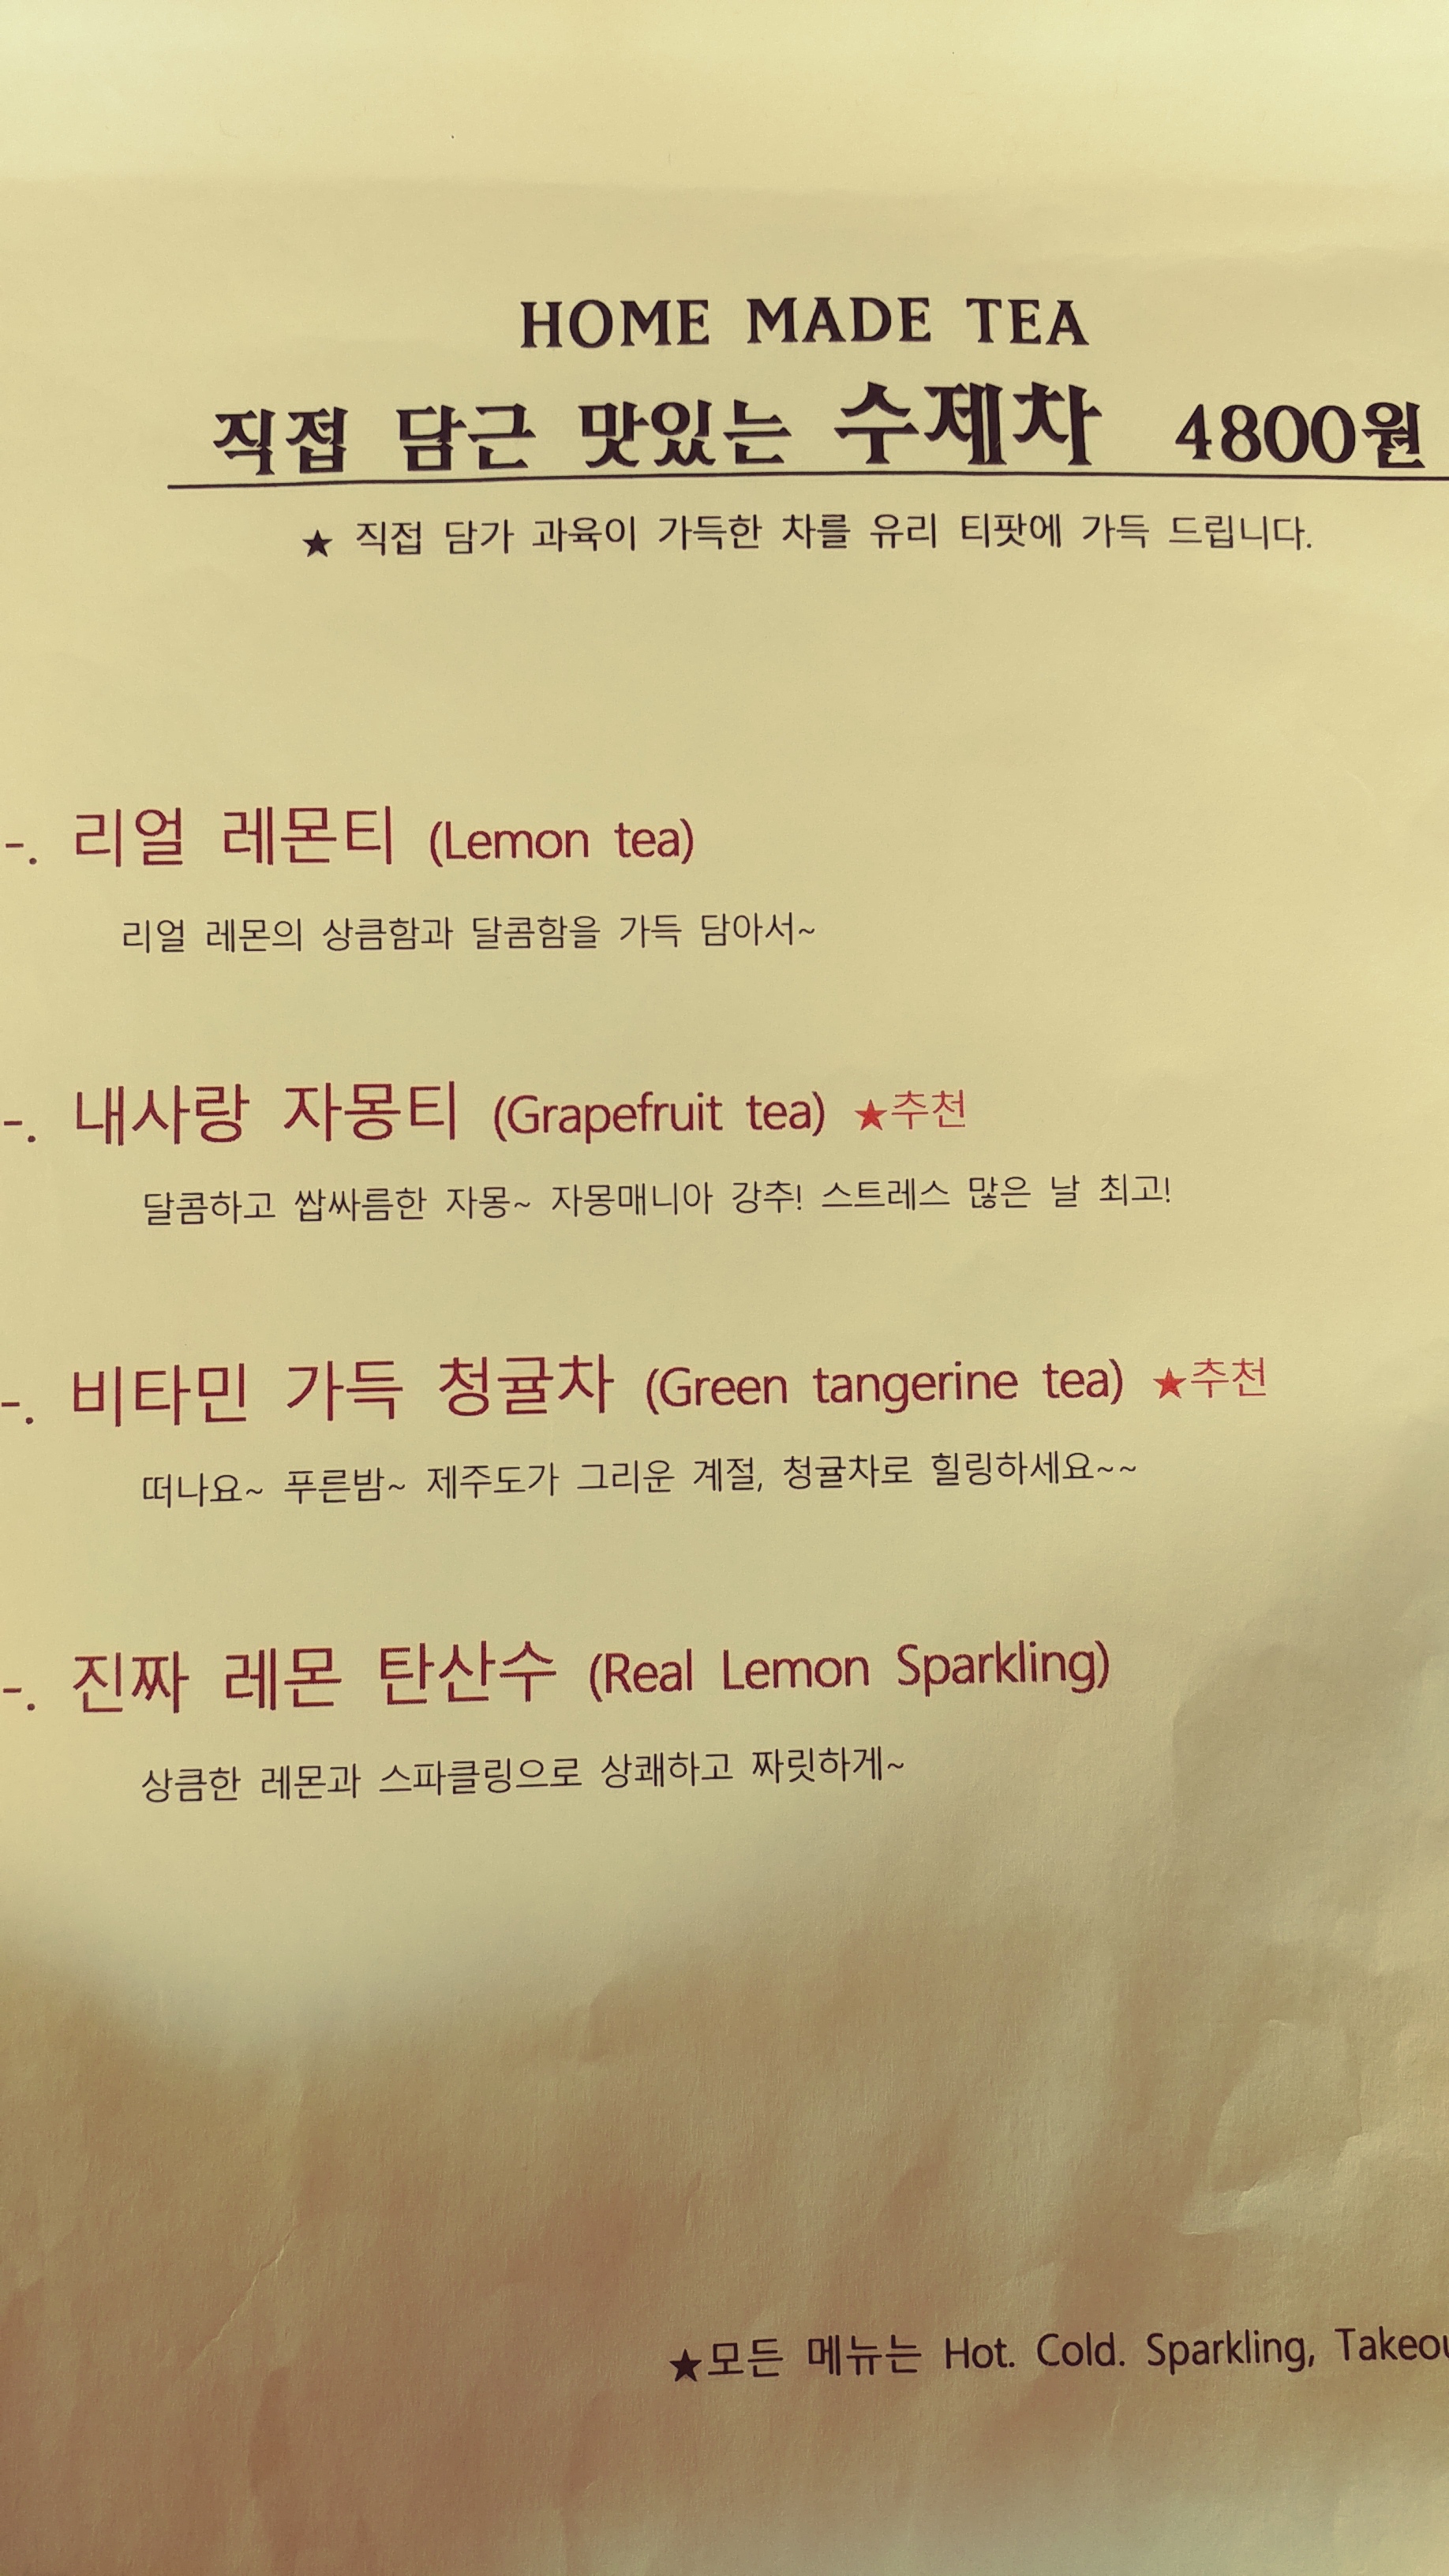 HOME MADE TEA
직접 담근 맛있는 수제차 4800원
★ 직접 담가 과육이 가득한 차를 유리 티팟에 가득 드립니다.
-. 리얼 레몬티 (Lemon tea)
리얼 레몬의 상큼함과 달콤함을 가득 담아서~
-. 내사랑 자몽티 (Grapefruit tea) ★추천
달콤하고 쌉싸름한 자몽~ 자몽매니아 강추! 스트레스 많은 날 최고!
-. 비타민 가득 청귤차 (Green tangerine tea) ★추천
떠나요~ 푸른밤~ 제주도가 그리운 계절, 청귤차로 힐링하세요~~
-. 진짜 레몬 탄산수 (Real Lemon Sparkling)
상큼한 레몬과 스파클링으로 상쾌하고 짜릿하게~
★모든 메뉴는 Hot. Cold. Sparkling,